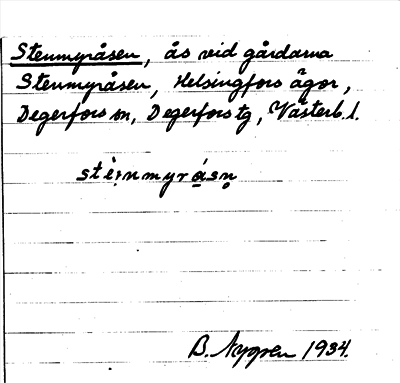 Stenmyråsen, ås vid gårdarna
Stenmyråsen, Helsingfors ägor,
Degerfors sn, Degerfors tg, Västerb. l.
stè̩nmyrǻsn̥
B. Nygren 1934.